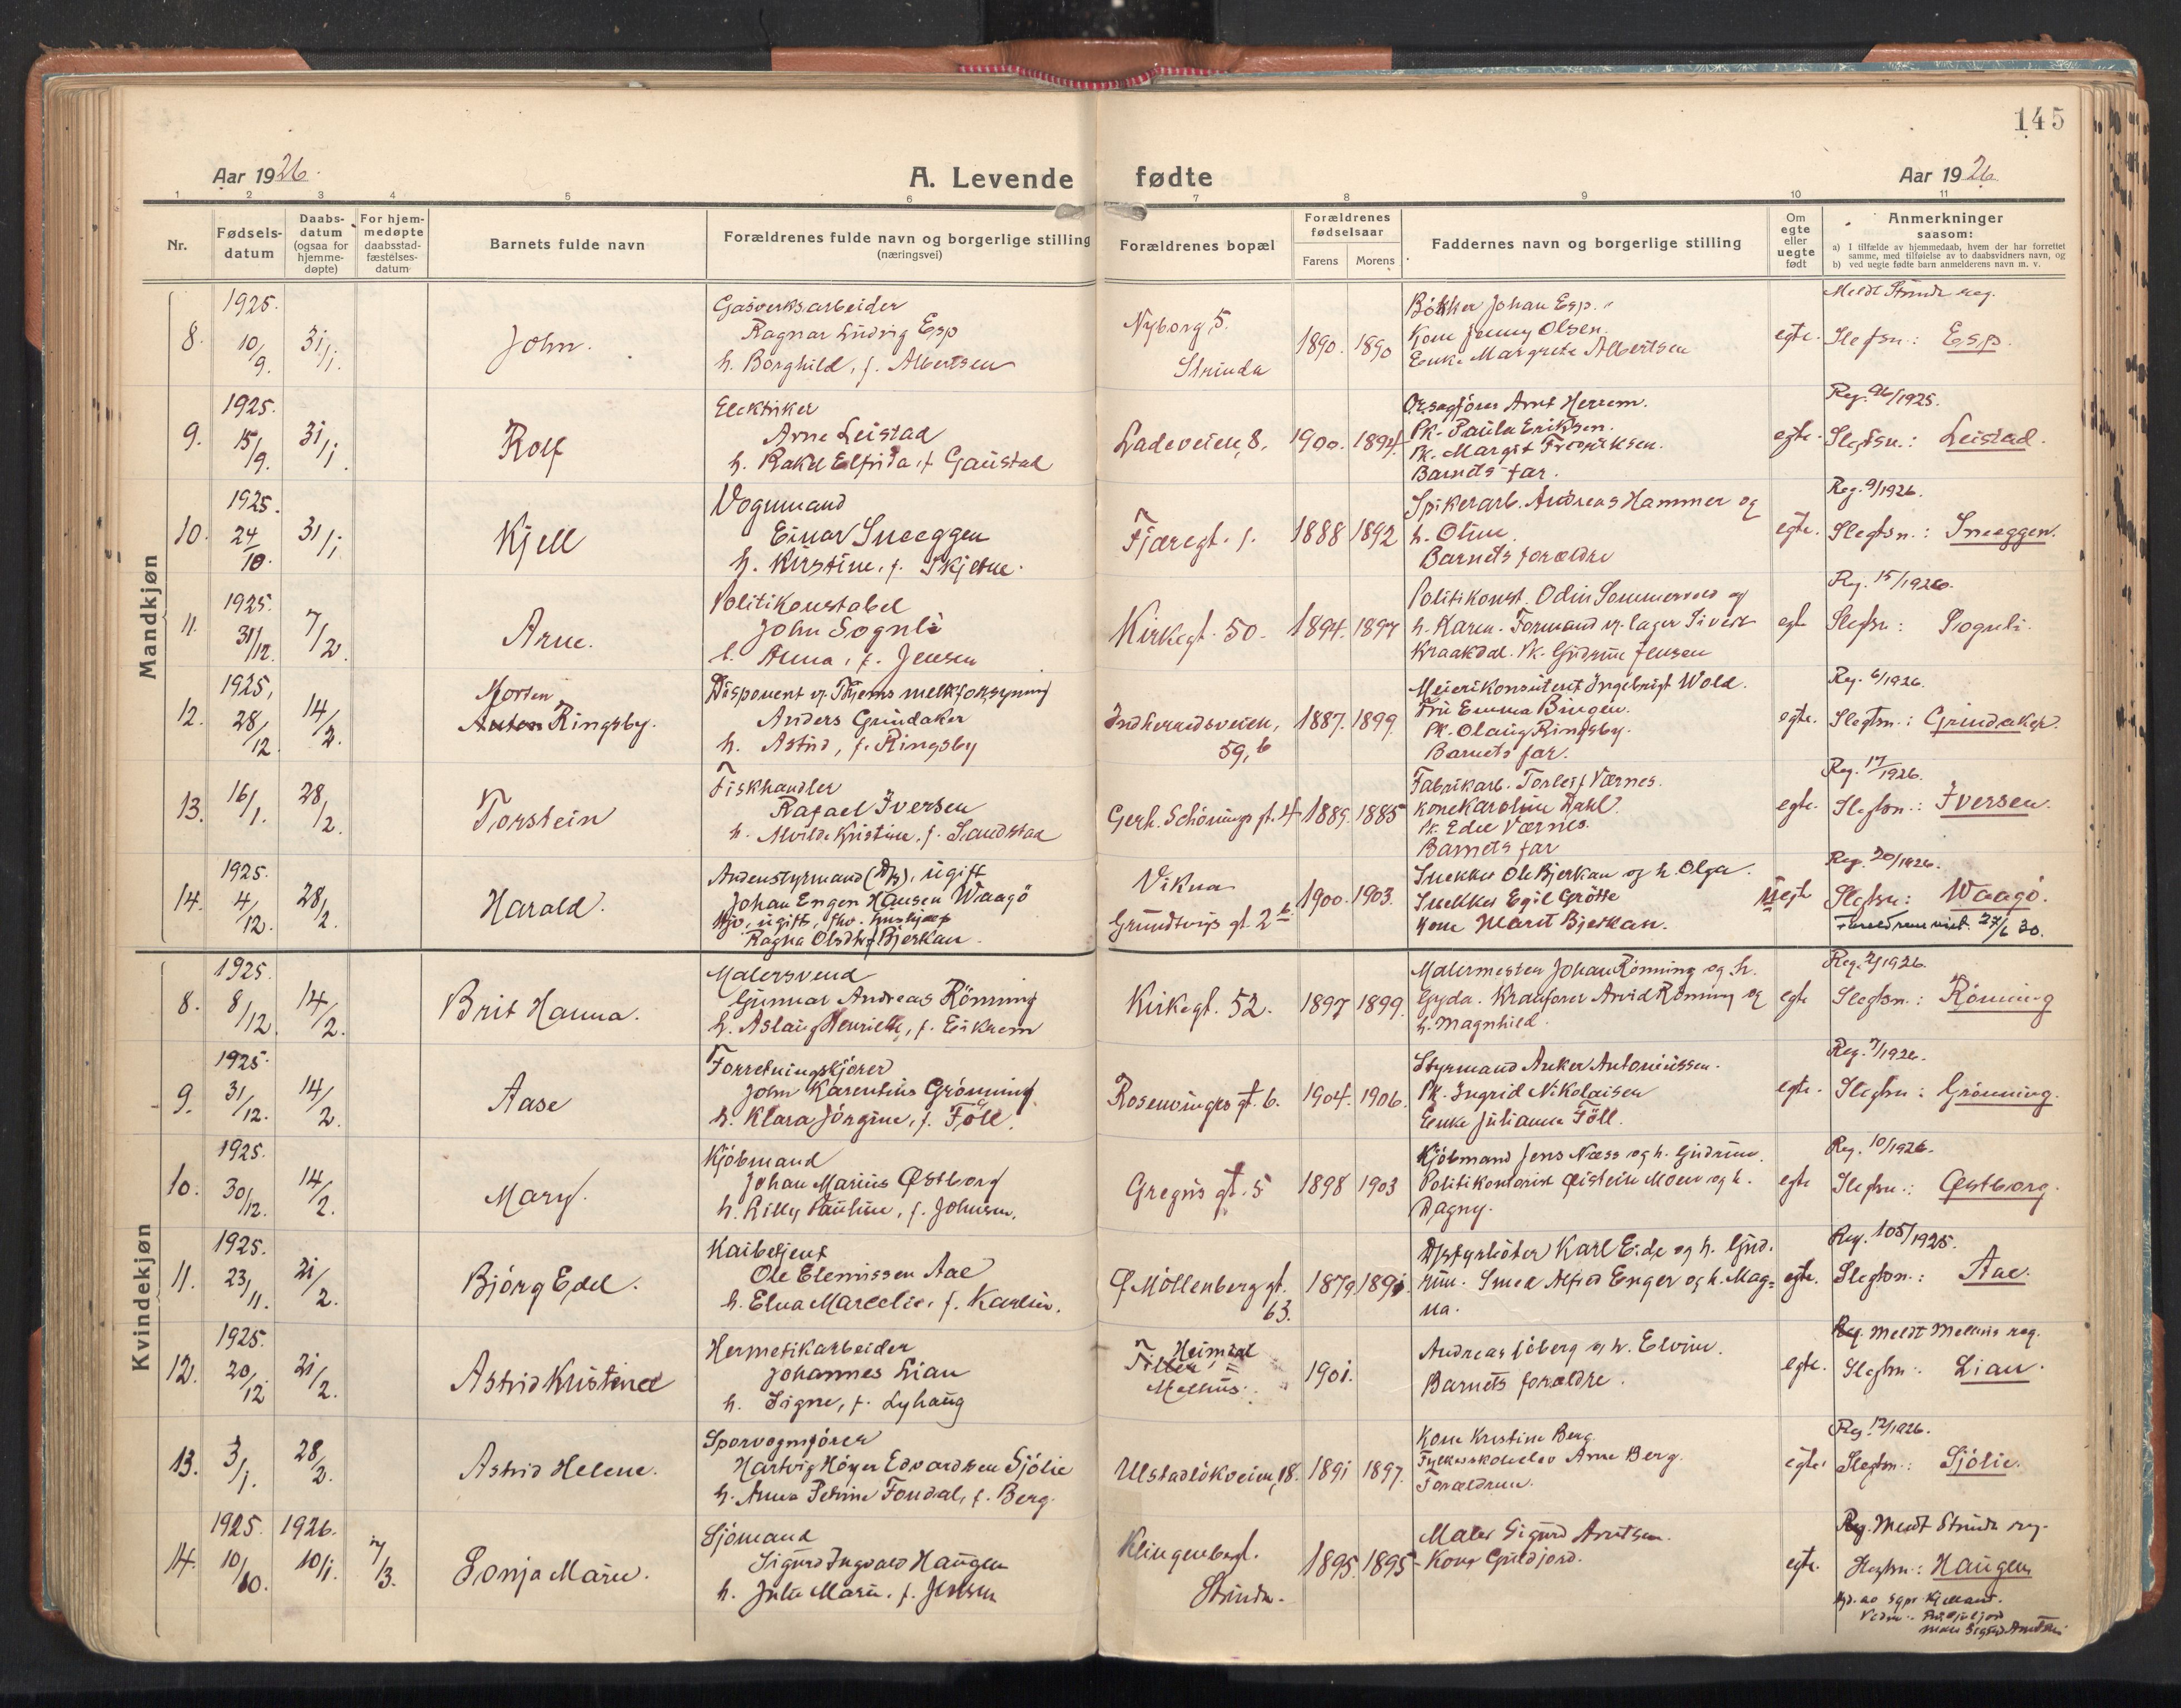 145
Aar 1926.
A. Levende fødte
Aar 1926
1 2 3 4 5 6 7 8 9 10 11
Nr.
Fødsels-
datum
Daabs-
datum
(ogsaa for
hjemme-
døpte)
For hjem-
medøpte
daabsstad-
fæstelses-
datum
Barnets fulde navn
Forældrenes fulde navn og borgerlige stilling
(næringsvei)
Forældrenes bopæl
Forældrenes
fødselsaar
Farens
Morens
Faddernes navn og borgerlige stilling
Om
egte
eller
uegte
født
Anmerkninger
saasom:
a) I tilfælde av hjemmedaab, hvem der har forrettet
samme, med tilføielse av to daabsvidners navn, og
b) ved uegte fødte barn anmelderens navn m. v.
Mandkjøn
8.
1925.
10/9.
31/1.
John.
Gasverksarbeider
Ragnar Ludvig Esp
h. Borghild, f. Albertsen
Nyborg, 5.
Strinda
1890. 1890
Bökker Johan Esp.
Kone Jenny Olsen.
Enke Margrete Albertsen
egte.
Meldt Strinda reg.
Slegtsn.: Esp.
9.
1925.
15/9.
31/1.
Rolf
Elektriker
Arne Leistad
h. Rakel Elfrida, f. Gaustad
Ladeveien, 8.
1900. 1894.
Arnt Herrem.
Pk. Paula Eriksen.
Pk. Margit Fredriksen.
Barnets far.
egte.
Reg. 96/1925.
Slegtsn.: Leistad.
10.
1925.
24/10.
31/1.
Kjell
Vognmand
Einar Sneeggen
h. Kirstine, f. Skjetne.
Fjæregt. 1.
1888 1892
Spikerarb. Andreas Hammer og
h. Oline.
Barnets forældre
egte.
Reg. 9/1926.
Slegtsn.: Sneeggen.
11.
1925.
31/12.
7/2.
Arne.
Politikonstabel
John Sognli
h. Anna, f. Jensen
Kirkegt. 50.
1894. 1897
Politikonst. Odin Sommervold og
h. Karen. Formand v. lager Sivert
Kraakdal. Pk. Gudrun Jensen
egte
Reg. 15/1926.
Slegtsn: Sognli.
12.
1925,
28/12
14/2.
Morten
Anton Ringsby.
Disponent v. Tr.hjems melkforsyning
Anders Grindaker
h. Astrid, f. Ringsby
Indherredsveien,
59, b
1887. 1899.
Meierikonsulent Ingebrigt Wold.
Fru Emma Bingen.
Pk. Olaug Ringsby.
Barnets far.
egte.
Reg. 6/1926.
Slegtsn.: Grindaker.
13.
16/1.
28/2.
Torstein
Fiskhandler
Rafael Iversen
h. Alvilde Kristine, f. Sandstad
Gerh. Schönings gt. 4
1889. 1885
Fabrikarb. Torleif Værnes.
kone Karoline Dahl.
Pk. Edee Værnes.
Barnets far
egte.
Reg. 17/1926.
Slegtsn.: Iversen.
14.
1925.
4/12.
28/2.
Harald.
Andenstyrmand (D/S), ugift
Johan Engen Hansen Waagö
Ragna Olsdtr. Bjerkan.
Vikna
Grundtvigs gt. 2b
1900. 1903.
Snekker Ole Bjerkan og h. Olga.
Snekker Egil Grötte
kone Marit Bjerkan.
Uegte
Reg. 20/1926.
Slegtsn: Waagö.
Foreldrene viet 27/6 30.
Kvindekjøn
8.
1925.
8/12
14/2.
Brit Hanna.
Malersvend
Gunnar Andreas Rönning
h. Aslaug Henriette, f. Eikrem
Kirkegt. 52.
1897 1899.
Malermester Johan Rönning og h.
Gyda. Kranfører Arvid Rönning og
h. Magnhild.
egte
Reg. 2/1926.
Slegtsn.: Rönning
9.
1925.
31/12.
14/2.
Aase
Forretningskjörer
John Karentius Grönning
h. Klara Jörgine, f. Föll.
Rosenvinges gt. 6.
1904. 1906.
Styrmand Anker Antoniussen.
Pk. Ingrid Nikolaisen
Enke Julianna Föll.
egte.
Reg. 7/1926.
Slegtsn: Grönning.
10.
1925.
30/12.
14/2.
Mary.
Kjöbmand
Johan Marius Østborg
h. Lilly Pauline, f. Johnsen.
Gregus gt. 5
1898 1903
Kjöbmand Jens Næss og h. Gudrun.
Politikontorist Øistein Moen og h.
Dagny.
egte
Reg. 10/1926.
Slegtsn.: Østborg.
11.
1925.
23/11.
21/2.
Bjørg Edel.
Kaibetjent
Ole Elenussen Aae
h. Elna Marcelie, f. Karlsen.
Ø. Möllenberg gt.
63.
1879. 1891.
Karl Eide og h. Gud-
run. Smed Alfred Enger og h. Mag-
na.
egte.
Reg. 105/1925.
Slegtsn.: Aae.
12.
1925.
20/12
21/2.
Astrid Kristine
Hermetikarbeider
Johannes Lian
h. Signe, f. Lyhaug
Heimdal
Tiller,
Melhus.
1901.
Andreas Sjöberg og h. Elvine.
Barnets forældre.
egte.
Reg. Meldt Melhus reg.
Slegtsn.: Lian.
13.
3/1.
28/2.
Astrid Helene.
Sporvognsfører
Hartvig Höyer Edvardsen Sjölie
h. Anna Petrine Fondal, f. Berg.
Ulstadlökveien, 18.
1891 1897.
Kone Kristine Berg.
Fylkesskoleelev Arne Berg.
Forældrene.
egte.
Reg. 12/1926.
Slegtsn.: Sjölie.
14.
1925.
10/10.
1926.
10/1.
7/3.
Sonja Marie.
Sjömand
Sigurd Ingvald Haugen
h. Julie Marie, f. Jensen
Klingenberg.
Strinda.
1895. 1895
Maler Sigurd Arntsen.
Kone Guldjord.
egte.
Reg. Meldt Strinda reg.
Slegtsn.: Haugen